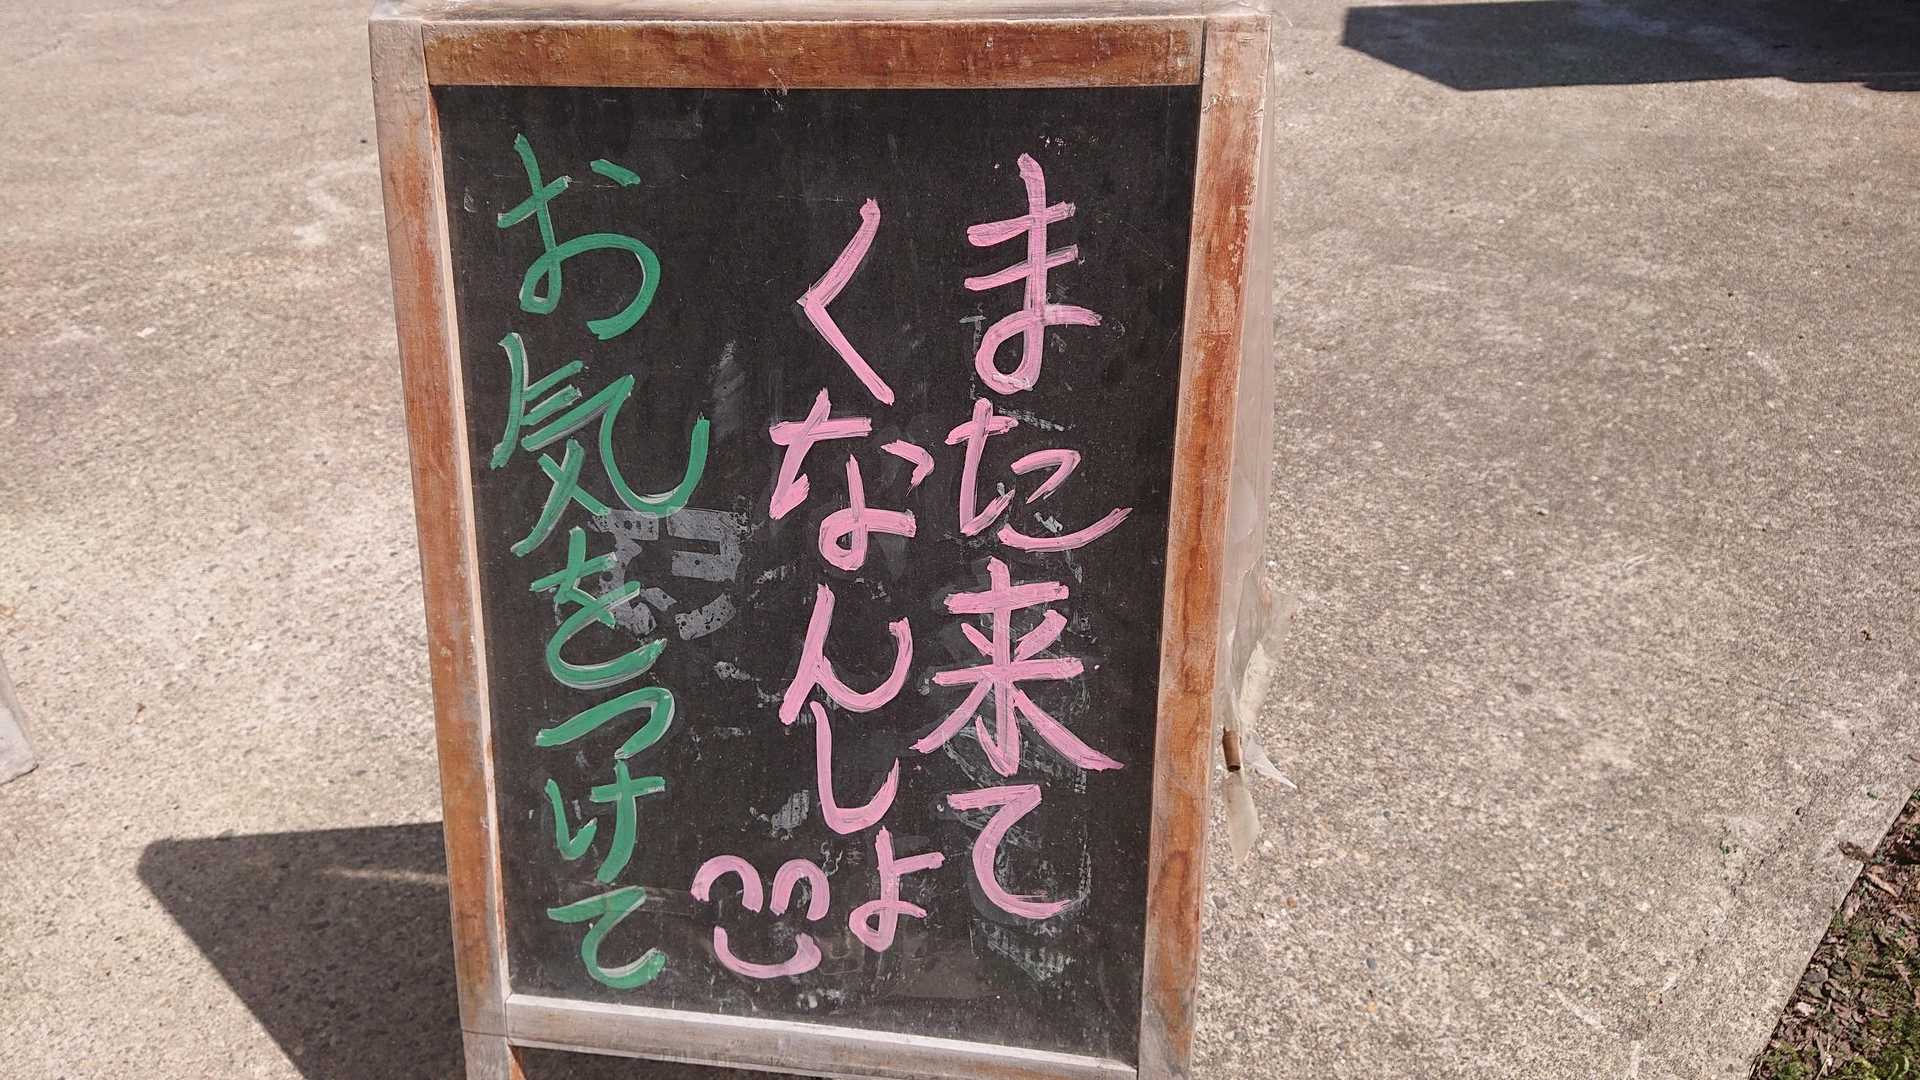 また来て
くなんしょ
お気をつけて